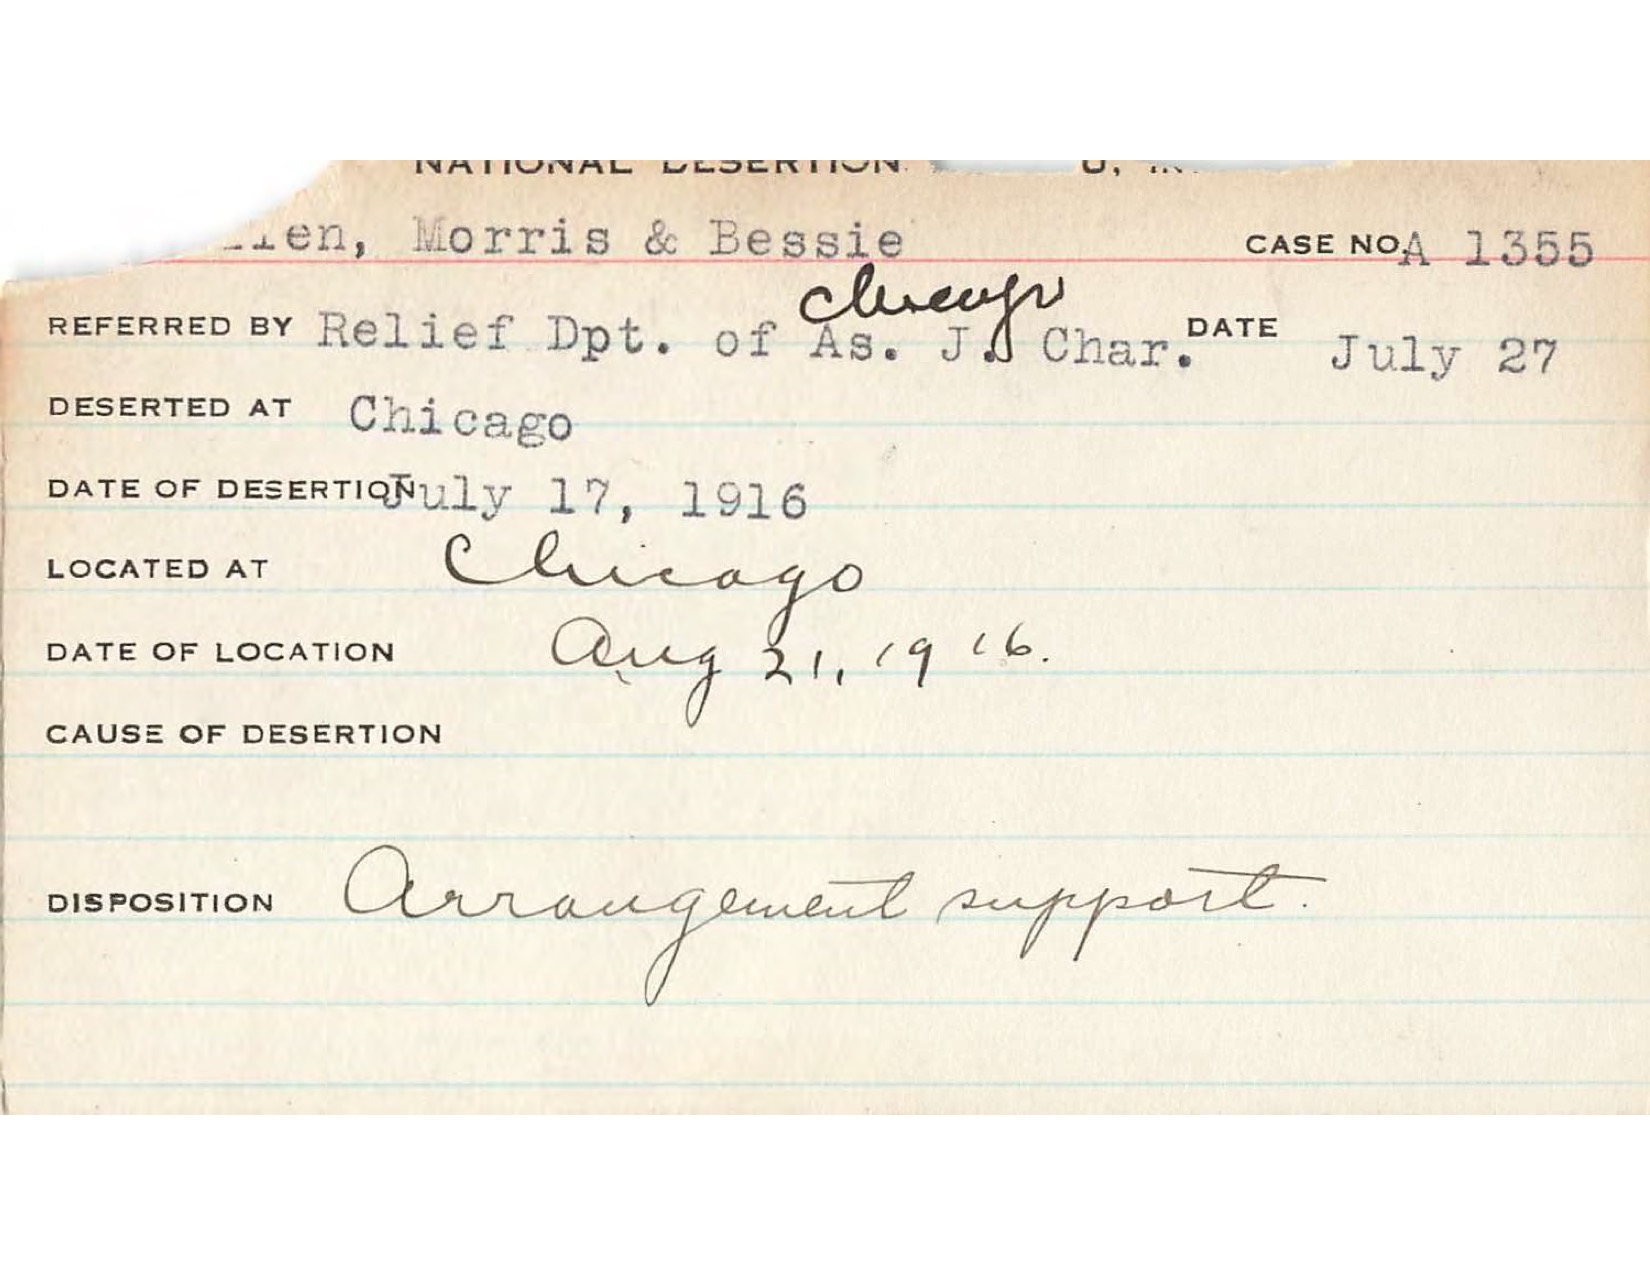 NATIONAL DESERTION
Morris & Bessie CASE NO. A 1355
Chicago
REFERRED BY Relief Dpt. of As. J. Char. DATE July 27
DESERTED AT Chicago
DATE OF DESERTION July 17, 1916
LOCATED AT Chicago
DATE OF LOCATION Aug 21, 1916.
CAUSE OF DESERTION
DISPOSITION Arrangement support.